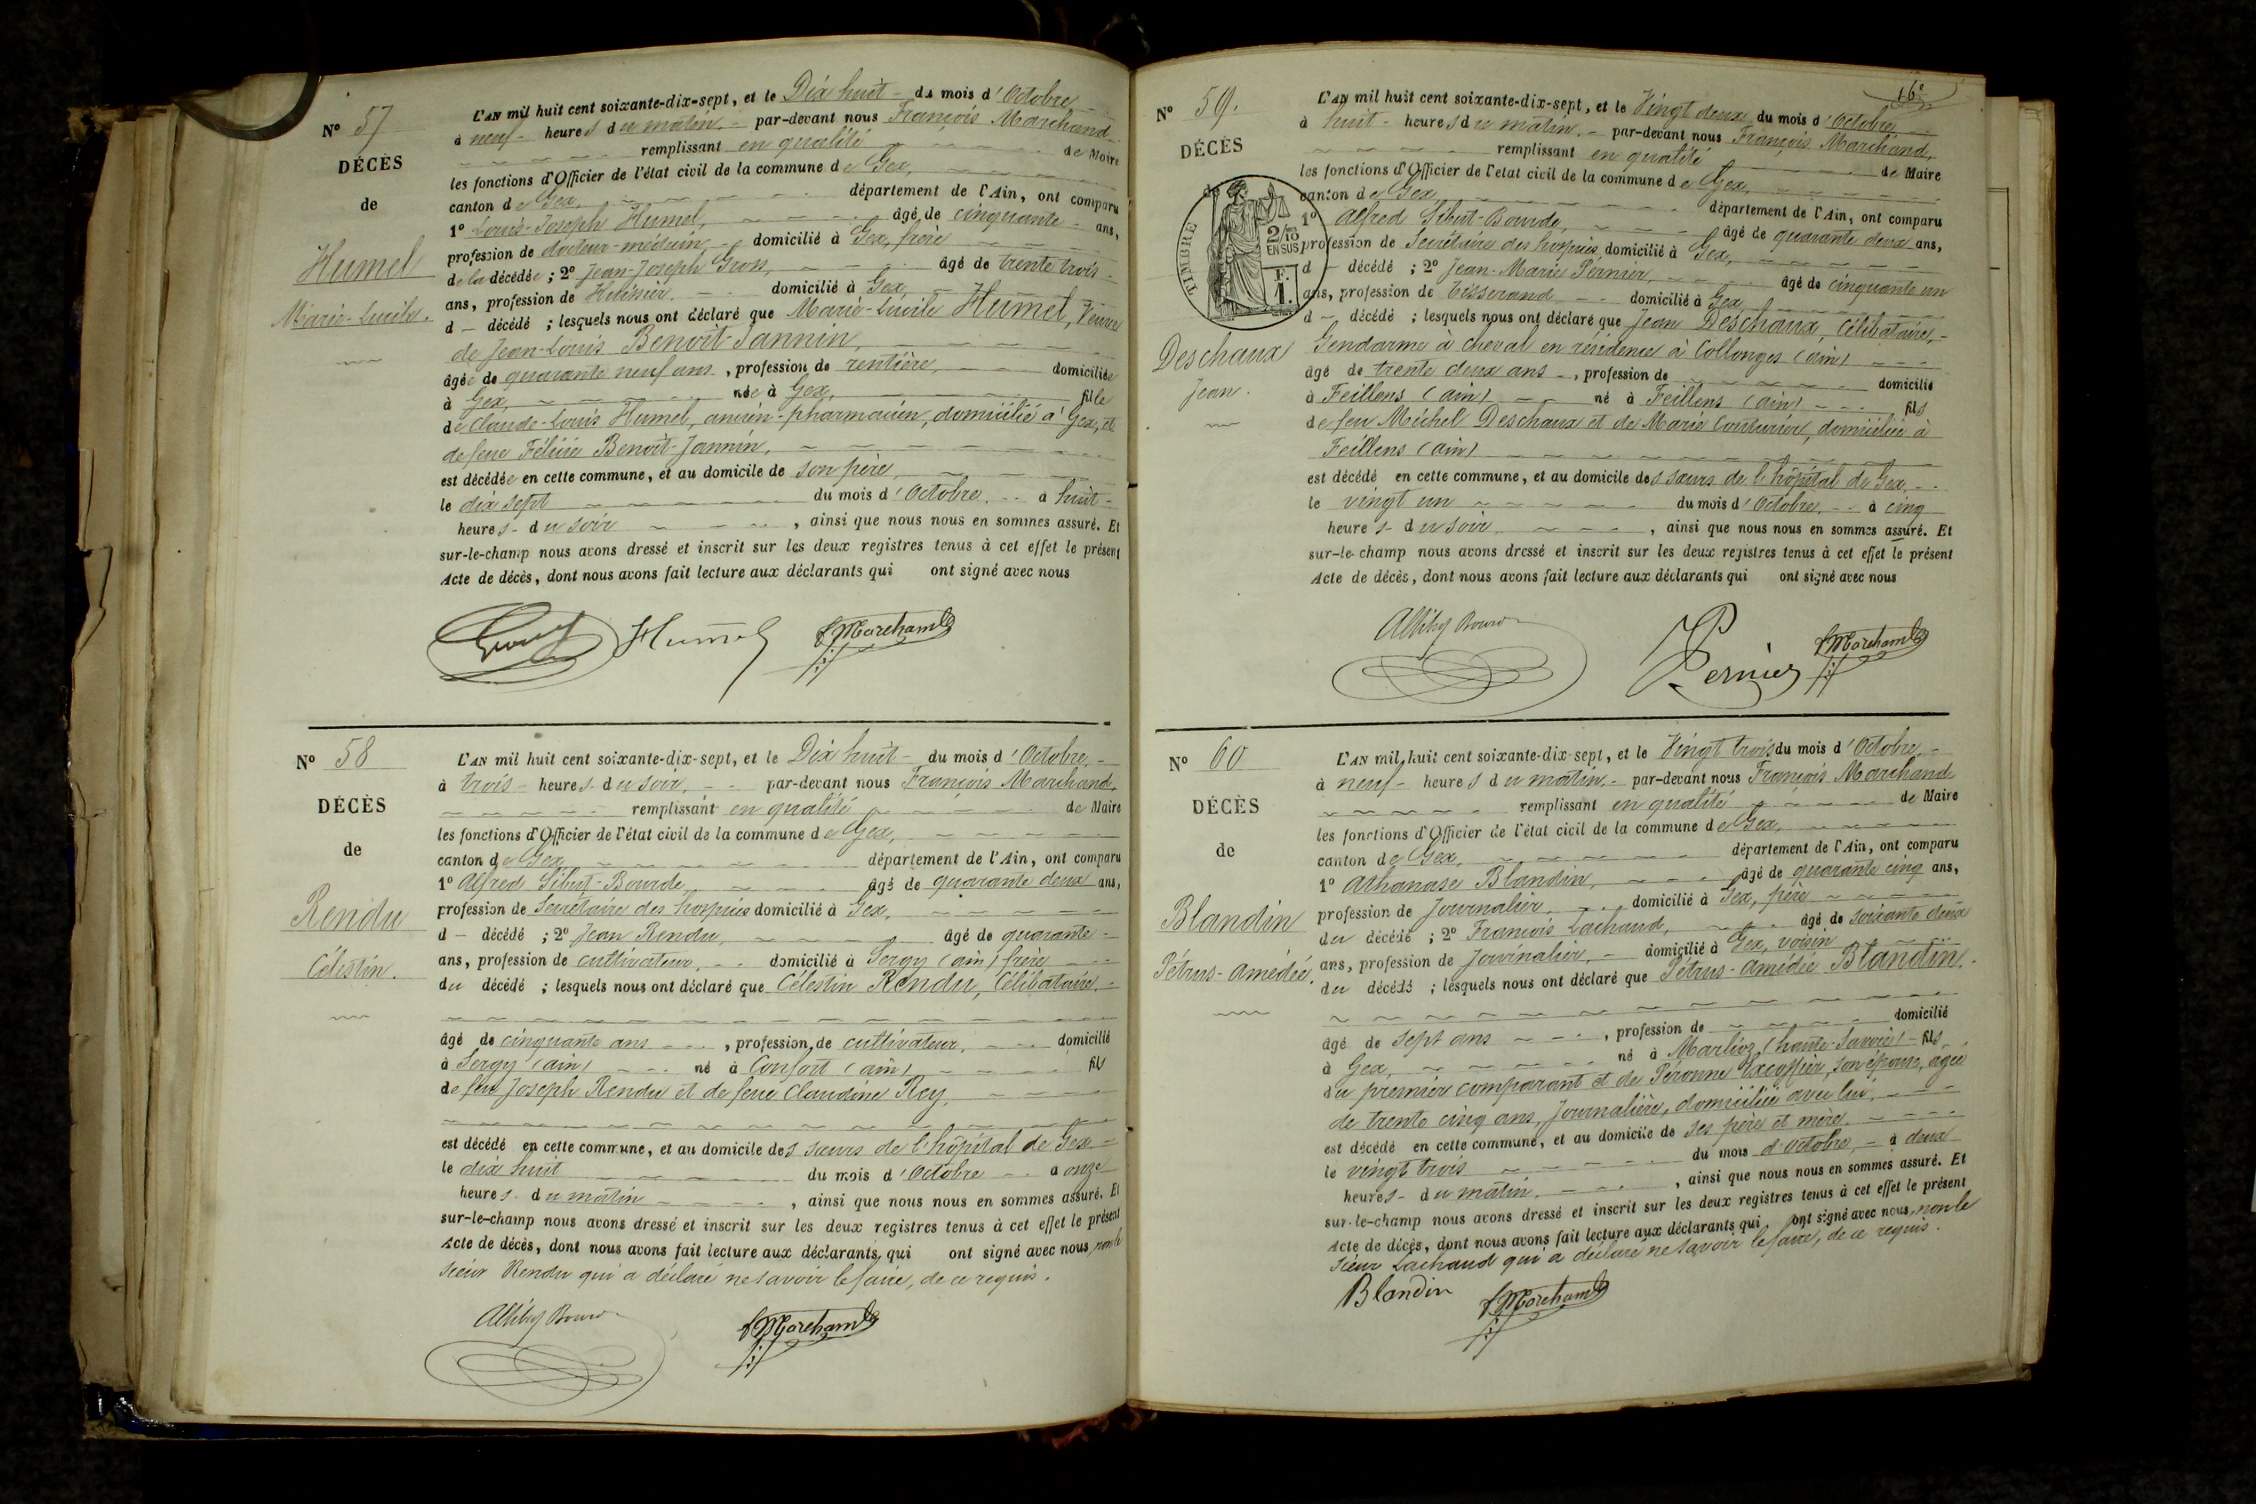 Nº 57
DÉCÈS
de
Humel
Marie-Lucile.
L'AN mil huit cent soixante-dix-sept, et le Dix huit du mois d'Octobre
à neuf heures du matin, par-devant nous François Marchand
remplissant en qualité de Maire
les fonctions d'Officier de l'état civil de la commune de Gex,
canton de Gex, département de l'Ain, ont comparu
1º Louis-Joseph Humel, âgé de cinquante ans,
profession de docteur-médecin, domicilié à Gex, frère
de la décédée ; 2º Jean-Joseph Gros, âgé de trente trois
ans, profession de domicilié à Gex,
d décédé ; lesquels nous ont déclaré que Marie-Lucile Humel, Veuve
de Jean-Louis Benoît-Jannin,
âgée de quarante neuf ans, profession de rentière, domiciliée
à Gex, née à Gex, fille
de Claude-Louis Humel, ancien-pharmacien, domicilié à Gex, et
de feue Félicie Benoît-Jannin,
est décédée en cette commune, et au domicile de son père,
le dix sept du mois d'Octobre à huit
heures du soir, ainsi que nous nous en sommes assuré. Et
sur-le-champ nous avons dressé et inscrit sur les deux registres tenus à cet effet le présent
Acte de décès, dont nous avons fait lecture aux déclarants qui ont signé avec nous
Humel F Marchand
Nº 58
DÉCÈS
de
Rendu
Célestin.
L'AN mil huit cent soixante-dix-sept, et le Dix huit du mois d'Octobre
à trois heures du soir, par-devant nous François Marchand,
remplissant en qualité de Maire
les fonctions d'Officier de l'état civil de la commune de Gex,
canton de Gex département de l'Ain, ont comparu
1º Alfred Sibut-Bourde, âgé de quarante deux ans,
profession de Secrétaire des hospices domicilié à Gex,
d décédé ; 2º Jean Rendu, âgé de quarante
ans, profession de cultivateur, domicilié à Sergy (ain) frère
du décédé ; lesquels nous ont déclaré que Célestin Rendu, Célibataire,
âgé de cinquante ans, profession de cultivateur, domicilié
à Sergy (ain) né à Confort (ain) fils
de feu Joseph Rendu et de feue Claudine Rey,
est décédé en cette commune, et au domicile des sœurs de l'hôpital de Gex
le dix huit du mois d'Octobre à onze
heures du matin, ainsi que nous nous en sommes assuré. Et
sur-le-champ nous avons dressé et inscrit sur les deux registres tenus à cet effet le présent
Acte de décès, dont nous avons fait lecture aux déclarants qui ont signé avec nous, non le
sieur Rendu qui a déclaré ne savoir le faire, de ce requis.
F Marchand
16e
Nº 59.
DÉCÈS
de
TIMBRE
2/10
EN SUS
F.
1.
Deschaux
Jean.
L'AN mil huit cent soixante-dix-sept, et le Vingt deux du mois d'Octobre
à huit heures du matin, par-devant nous François Marchand,
remplissant en qualité de Maire
les fonctions d'Officier de l'état civil de la commune de Gex,
canton de Gex, département de l'Ain, ont comparu
1º Alfred Sibut-Bourde, âgé de quarante deux ans,
profession de Secrétaire des hospices, domicilié à Gex,
d décédé ; 2º Jean-Marie Pernier, âgé de cinquante un
ans, profession de Tisserand domicilié à Gex
d décédé ; lesquels nous ont déclaré que Jean Deschaux, Célibataire,
Gendarme à cheval en résidence à Collonges (ain)
âgé de trente deux ans, profession de domicilié
à Feillens (ain) né à Feillens (ain) fils
de feu Michel Deschaux et de Marie Couturier, domiciliée à
Feillens (ain)
est décédé en cette commune, et au domicile des sœurs de l'hôpital de Gex,
le vingt un du mois d'Octobre, à cinq
heures du soir, ainsi que nous nous en sommes assuré. Et
sur-le-champ nous avons dressé et inscrit sur les deux registres tenus à cet effet le présent
Acte de décès, dont nous avons fait lecture aux déclarants qui ont signé avec nous
Pernier F Marchand
Nº 60
DÉCÈS
de
Blandin
Pétrus-Amédée.
L'AN mil huit cent soixante-dix-sept, et le Vingt trois du mois d'Octobre,
à neuf heures du matin, par-devant nous François Marchand
remplissant en qualité de Maire
les fonctions d'Officier de l'état civil de la commune de Gex,
canton de Gex, département de l'Ain, ont comparu
1º Athanase Blandin, âgé de quarante cinq ans,
profession de Journalier, domicilié à Gex, père
du décédé ; 2º François Lachaud, âgé de soixante deux
ans, profession de Journalier, domicilié à Gex, voisin
du décédé ; lesquels nous ont déclaré que Pétrus-Amédée Blandin.
âgé de sept ans, profession de domicilié
à Gex, né à Marlioz (haute-Savoie) fils
du premier comparant et de Péronne Excoffier, son épouse, âgée
de trente cinq ans, Journalière, domiciliée avec lui,
est décédé en cette commune, et au domicile de ses père et mère,
le vingt trois du mois d'octobre, à deux
heures du matin, ainsi que nous nous en sommes assuré. Et
sur-le-champ nous avons dressé et inscrit sur les deux registres tenus à cet effet le présent
Acte de décès, dont nous avons fait lecture aux déclarants qui ont signé avec nous, non le
sieur Lachaud qui a déclaré ne savoir le faire, de ce requis.
Blandin F Marchand